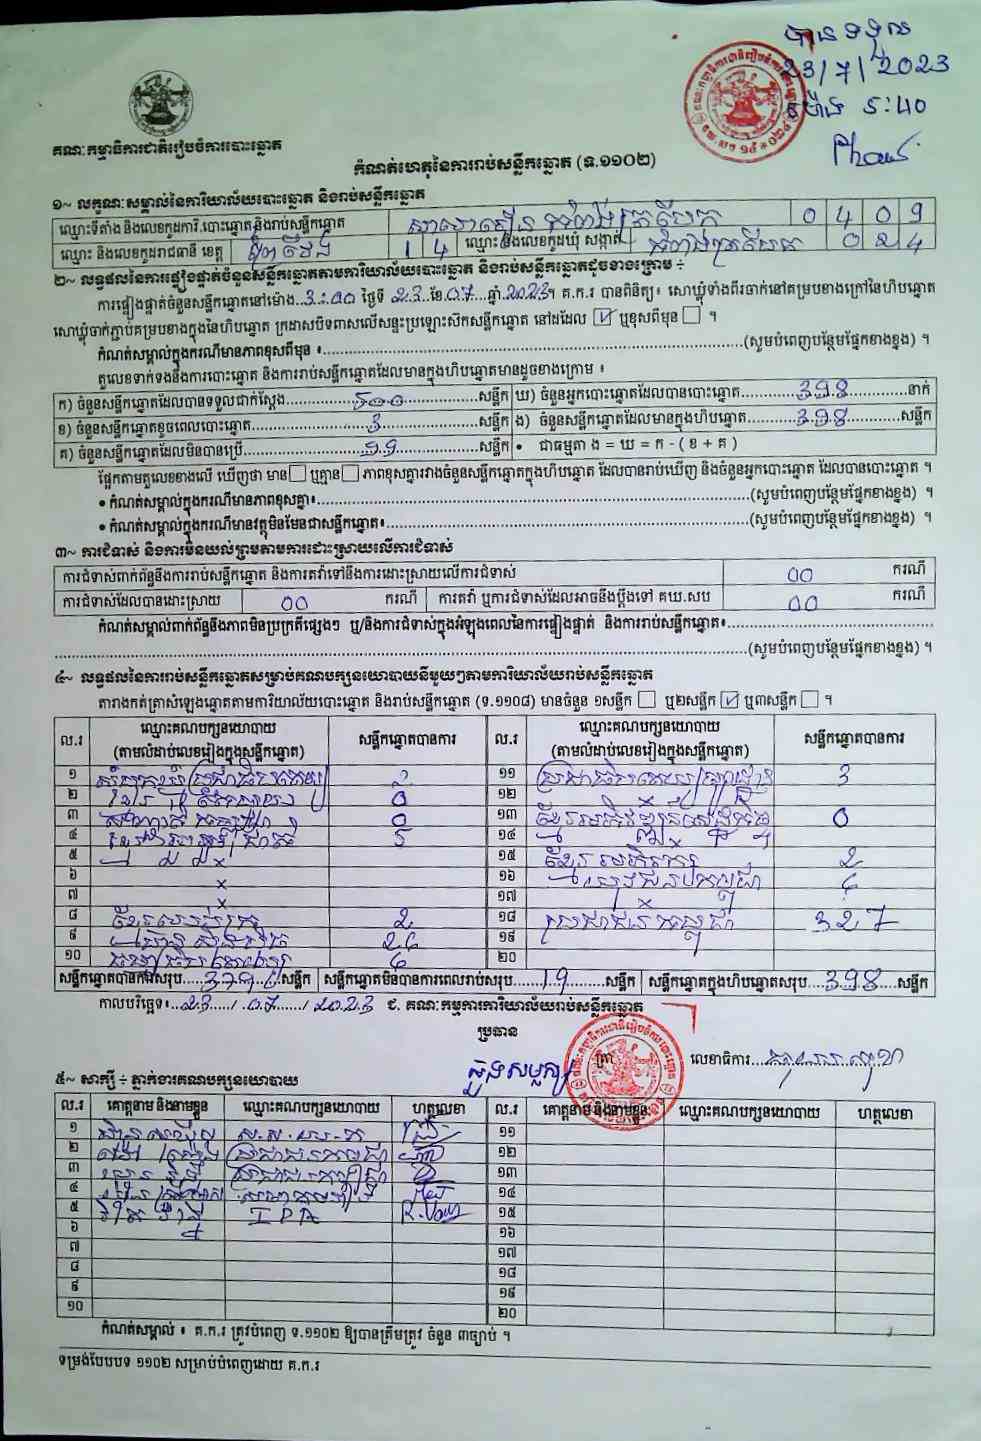 បានទទួល
23/7/2023
ម៉ោង ៥:៤០
គណៈកម្មាធិការជាតិរៀបចំការបោះឆ្នោត
កំណត់ហេតុនៃការរាប់សន្លឹកឆ្នោត (ទ.១១០២)
១~ លក្ខណៈសម្គាល់នៃការិយាល័យបោះឆ្នោត និងរាប់សន្លឹកឆ្នោត
ឈ្មោះទីតាំង និងលេខកូដការិ.បោះឆ្នោតនិងរាប់សន្លឹកឆ្នោត 0 4 0 9
ឈ្មោះ និងលេខកូដរាជធានី ខេត្ត ព្រៃវែង 1 4 ឈ្មោះនិងលេខកូដឃុំ សង្កាត់ 0 2 4
២~ លទ្ធផលនៃការផ្ទៀងផ្ទាត់ចំនួនសន្លឹកឆ្នោតតាមការិយាល័យបោះឆ្នោត និងរាប់សន្លឹកឆ្នោតដូចខាងក្រោម ÷
ការផ្ទៀងផ្ទាត់ចំនួនសន្លឹកឆ្នោតនៅម៉ោង 3:00 ថ្ងៃទី 23 ខែ 07 ឆ្នាំ 2023។ គ.ក.រ បានពិនិត្យ៖ សោឃ្លុំទាំងពីរចាក់នៅគម្របខាងក្រៅនៃហិបឆ្នោត
សោឃ្លុំចាក់ភ្ជាប់គម្របខាងក្នុងនៃហិបឆ្នោត ក្រដាសបិទពាសលើសន្ទះប្រឡោះស៊កសន្លឹកឆ្នោត នៅដដែល ☑ ឬខុសពីមុន ☐ ។
កំណត់សម្គាល់ក្នុងករណីមានភាពខុសពីមុន ៖ (សូមបំពេញបន្ថែមផ្នែកខាងខ្នង) ។
តួលេខទាក់ទងនឹងការបោះឆ្នោត និងការរាប់សន្លឹកឆ្នោតដែលមានក្នុងហិបឆ្នោតមានដូចខាងក្រោម ៖
ក) ចំនួនសន្លឹកឆ្នោតដែលបានទទួលជាក់ស្តែង 500 សន្លឹក ឃ) ចំនួនអ្នកបោះឆ្នោតដែលបានបោះឆ្នោត 398 នាក់
ខ) ចំនួនសន្លឹកឆ្នោតខូចពេលបោះឆ្នោត 3 សន្លឹក ង) ចំនួនសន្លឹកឆ្នោតដែលមានក្នុងហិបឆ្នោត 398 សន្លឹក
គ) ចំនួនសន្លឹកឆ្នោតដែលមិនបានប្រើ 99 សន្លឹក • ជាធម្មតា ង = ឃ = ក - ( ខ + គ )
ផ្អែកតាមតួលេខខាងលើ ឃើញថា មាន ☐ ឬគ្មាន ☐ ភាពខុសគ្នារវាងចំនួនសន្លឹកឆ្នោតក្នុងហិបឆ្នោត ដែលបានរាប់ឃើញ និងចំនួនអ្នកបោះឆ្នោត ដែលបានបោះឆ្នោត ។
• កំណត់សម្គាល់ក្នុងករណីមានភាពខុសគ្នា៖ (សូមបំពេញបន្ថែមផ្នែកខាងខ្នង) ។
• កំណត់សម្គាល់ក្នុងករណីមានវត្ថុមិនមែនជាសន្លឹកឆ្នោត៖ (សូមបំពេញបន្ថែមផ្នែកខាងខ្នង) ។
៣~ ការជំទាស់ និងការមិនយល់ព្រមតាមការដោះស្រាយលើការជំទាស់
ការជំទាស់ពាក់ព័ន្ធនឹងការរាប់សន្លឹកឆ្នោត និងការតវ៉ាទៅនឹងការដោះស្រាយលើការជំទាស់ 00 ករណី
ការជំទាស់ដែលបានដោះស្រាយ 00 ករណី ការតវ៉ា ឬការជំទាស់ដែលអាចនឹងប្តឹងទៅ គឃ.សប 00 ករណី
កំណត់សម្គាល់ពាក់ព័ន្ធនឹងភាពមិនប្រក្រតីផ្សេងៗ ឬ/និងការជំទាស់ក្នុងអំឡុងពេលនៃការផ្ទៀងផ្ទាត់ និងការរាប់សន្លឹកឆ្នោត៖
(សូមបំពេញបន្ថែមផ្នែកខាងខ្នង) ។
៤~ លទ្ធផលនៃការរាប់សន្លឹកឆ្នោតសម្រាប់គណបក្សនយោបាយនីមួយៗតាមការិយាល័យរាប់សន្លឹកឆ្នោត
តារាងកត់ត្រាសំឡេងឆ្នោតតាមការិយាល័យបោះឆ្នោត និងរាប់សន្លឹកឆ្នោត (ទ.១១០៨) មានចំនួន ១សន្លឹក ☐ ឬ២សន្លឹក ☑ ឬ៣សន្លឹក ☐ ។
ល.រ ឈ្មោះគណបក្សនយោបាយ (តាមលំដាប់លេខរៀងក្នុងសន្លឹកឆ្នោត) សន្លឹកឆ្នោតបានការ ល.រ ឈ្មោះគណបក្សនយោបាយ (តាមលំដាប់លេខរៀងក្នុងសន្លឹកឆ្នោត) សន្លឹកឆ្នោតបានការ
១ សំបុកឃ្មុំ ១១ 3
២ 0 ១២ x
៣ 0 ១៣ 0
៤ 5 ១៤ x
៥ x ១៥ 2
៦ x ១៦
៧ x ១៧ x
៨ 2 ១៨ ប្រជាជនកម្ពុជា 327
៩ ១៩
១០ ២០
សន្លឹកឆ្នោតបានការសរុប សន្លឹក សន្លឹកឆ្នោតមិនបានការពេលរាប់សរុប 19 សន្លឹក សន្លឹកឆ្នោតក្នុងហិបឆ្នោតសរុប 398 សន្លឹក
កាលបរិច្ឆេទ៖ 23 / 07 / 2023 ជ. គណៈកម្មការការិយាល័យរាប់សន្លឹកឆ្នោត
ប្រធាន
ត្រា លេខាធិការ
៥~ សាក្សី ÷ ភ្នាក់ងារគណបក្សនយោបាយ
ល.រ គោត្តនាម និងនាមខ្លួន ឈ្មោះគណបក្សនយោបាយ ហត្ថលេខា ល.រ គោត្តនាម និងនាមខ្លួន ឈ្មោះគណបក្សនយោបាយ ហត្ថលេខា
១ ១១
២ ១២
៣ ១៣
៤ ១៤
៥ ១៥
៦ ១៦
៧ ១៧
៨ ១៨
៩ ១៩
១០ ២០
កំណត់សម្គាល់ ៖ គ.ក.រ ត្រូវបំពេញ ទ.១១០២ ឱ្យបានត្រឹមត្រូវ ចំនួន ៣ច្បាប់ ។
ទម្រង់បែបបទ ១១០២ សម្រាប់បំពេញដោយ គ.ក.រ